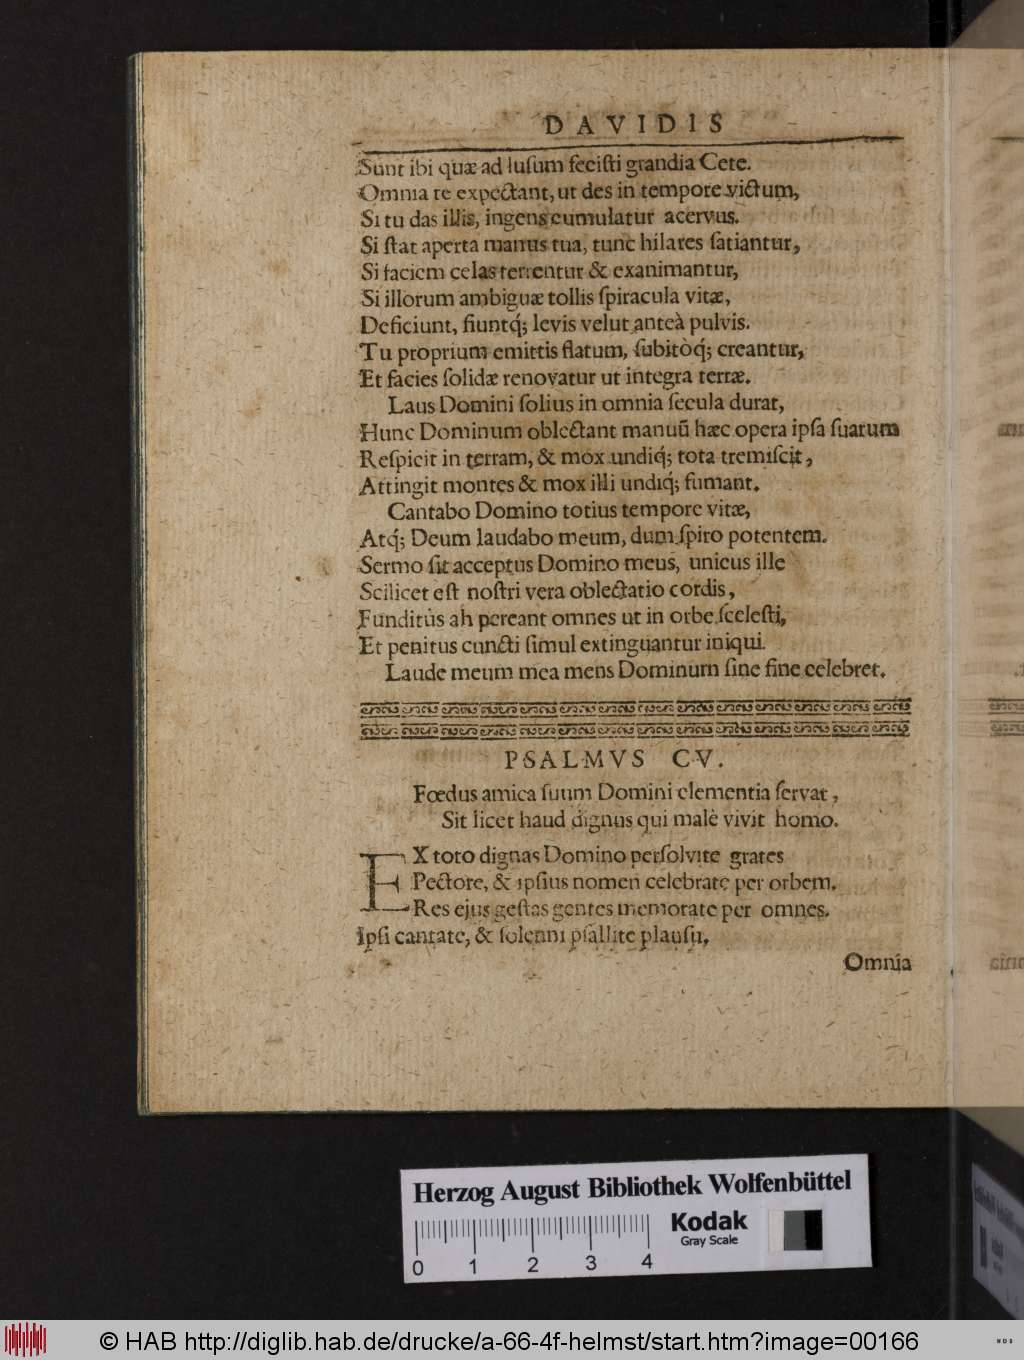 DAVIDIS
Sunt ibi quæ ad luſum feciſti grandia Cete.
Omnia te expectant, ut des in tempore victum,
Si tu das illis, ingens cumulatur acervus.
Si ſtat aperta manus tua, tunc hilares ſatiantur,
Si faciem celas terrentur & exanimantur,
Si illorum ambiguæ tollis ſpiracula vitæ,
Deficiunt, fiuntq́; levis velut anteà pulvis.
Tu proprium emittis flatum, ſubitòq́; creantur,
Et facies ſolidæ renovatur ut integra terræ.
Laus Domini ſolius in omnia ſecula durat,
Hunc Dominum oblectant manuū hæc opera ipſa ſuarum
Reſpicit in terram, & mox undiq́; tota tremiſcit,
Attingit montes & mox illi undiq́; fumant.
Cantabo Domino totius tempore vitæ,
Atq́; Deum laudabo meum, dum ſpiro potentem.
Sermo ſit acceptus Domino meus, unicus ille
Scilicet eſt noſtri vera oblectatio cordis,
Funditùs ah pereant omnes ut in orbe ſceleſti,
Et penitus cuncti ſimul extinguantur iniqui.
Laude meum mea mens Dominum ſine fine celebret.
PSALMVS CV.
Fœdus amica ſuum Domini clementia ſervat,
Sit licet haud dignus qui malè vivit homo.
EX toto dignas Domino perſolvite grates
Pectore, & ipſius nomen celebrate per orbem.
Res ejus geſtas gentes memorate per omnes.
Ipſi cantate, & ſolenni pſallite plauſu,
Omnia
Herzog August Bibliothek Wolfenbüttel
Kodak
Gray Scale
0 1 2 3 4
© HAB http://diglib.hab.de/drucke/a-66-4f-helmst/start.htm?image=00166